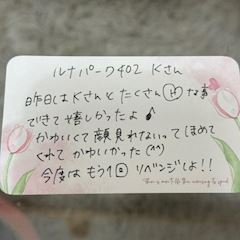 ルナパーク402 Kさん
昨日はKさんとたくさんHな事
できて嬉しかったよ♪
かわいくて顔見れないってほめて
くれてかわいかった(^^)
今度はもう1回リベンジしよ!!